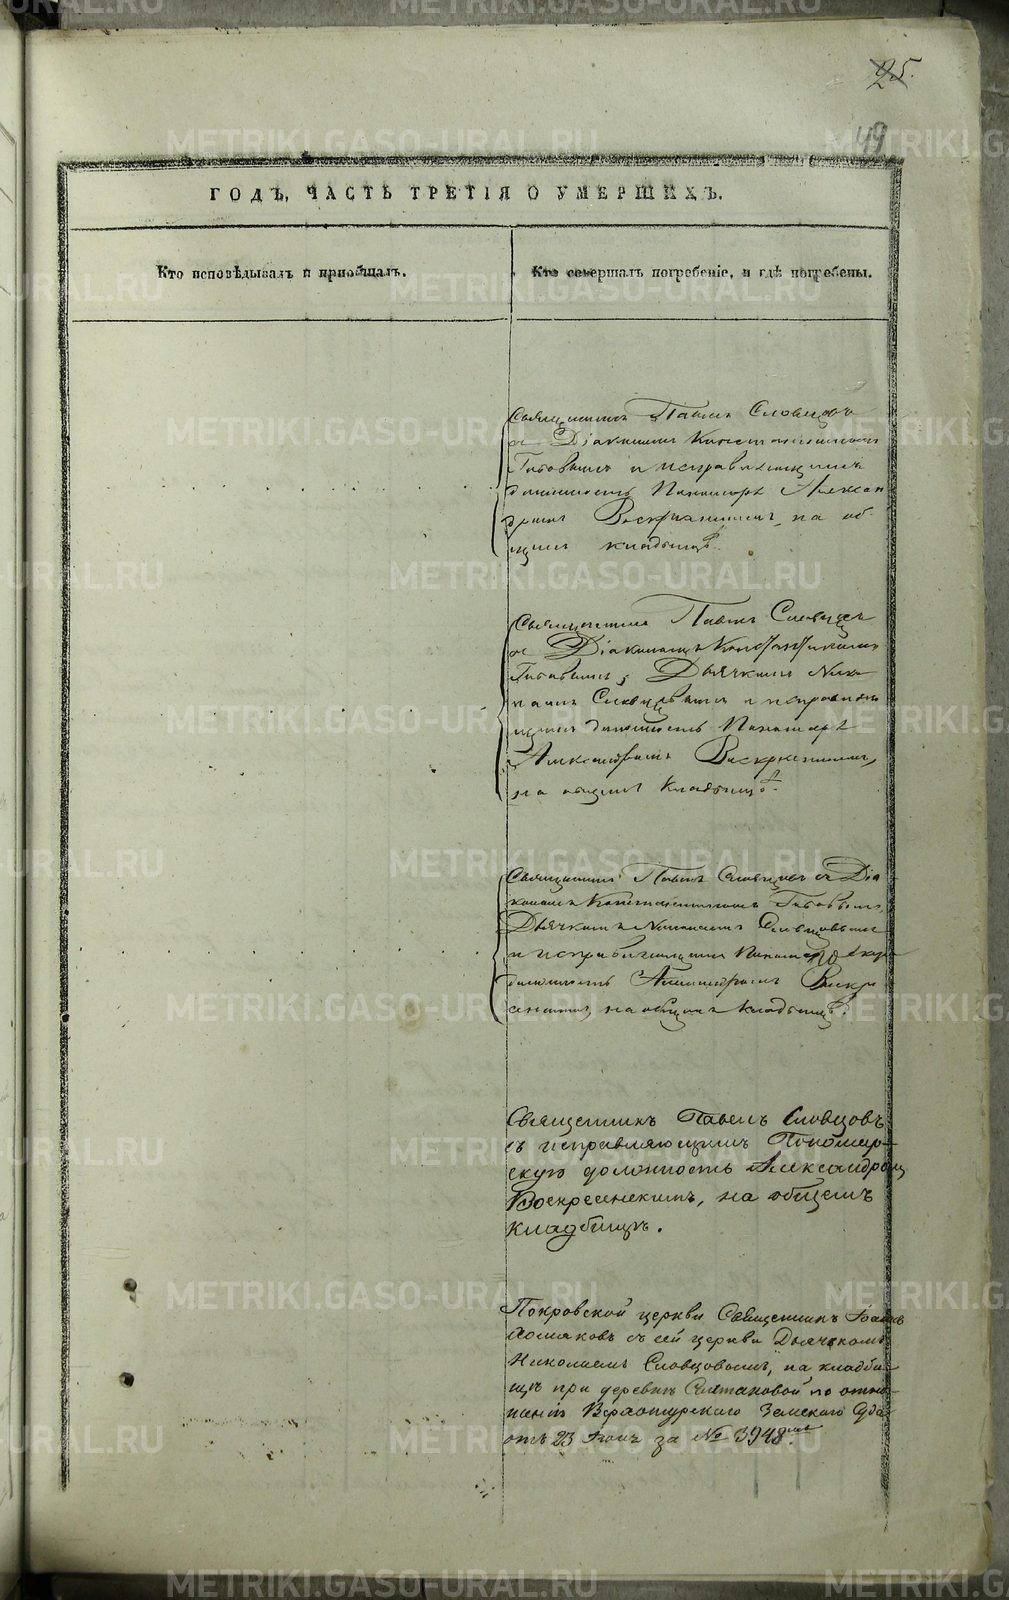 25.
49
ГОДЪ, ЧАСТЬ ТРЕТІЯ О УМЕРШИХЪ.
Кто исповѣдывалъ и приобщалъ.
Кто совершалъ погребеніе, и гдѣ погребены.
Священникъ Павелъ Словцовъ
съ Діакономъ Константиномъ
и исправляющимъ
должность Пономаря Алексан
дромъ Воскресенскимъ, на об-
щемъ кладбищѣ.
Священникъ Павелъ Словцовъ
съ Діакономъ Константиномъ
Дьячкомъ Нико
лаемъ Словцовымъ и исправляю
щимъ должность Пономаря
Александромъ Воскресенскимъ,
на общемъ кладбищѣ.
Священникъ Павелъ Словцовъ съ Діа-
кономъ Константиномъ
Дьячкомъ Николаемъ Словцовымъ
и исправляющимъ Пономарскую
должность Александромъ Воскре
сенскимъ, на общемъ кладбищѣ.
Священникъ Павелъ Словцовъ
съ исправляющимъ Пономар-
скую должность Александромъ
Воскресенскимъ, на общемъ
кладбищѣ.
Покровской церкви Священникъ Іоаннъ
съ сей церкви Дьячкомъ
Николаемъ Словцовымъ, на кладби-
щѣ при деревнѣ по отно-
шенію Верхотурскаго Земскаго Суда
отъ 23 за № 3948.
METRIKI.GASO-URAL.RU